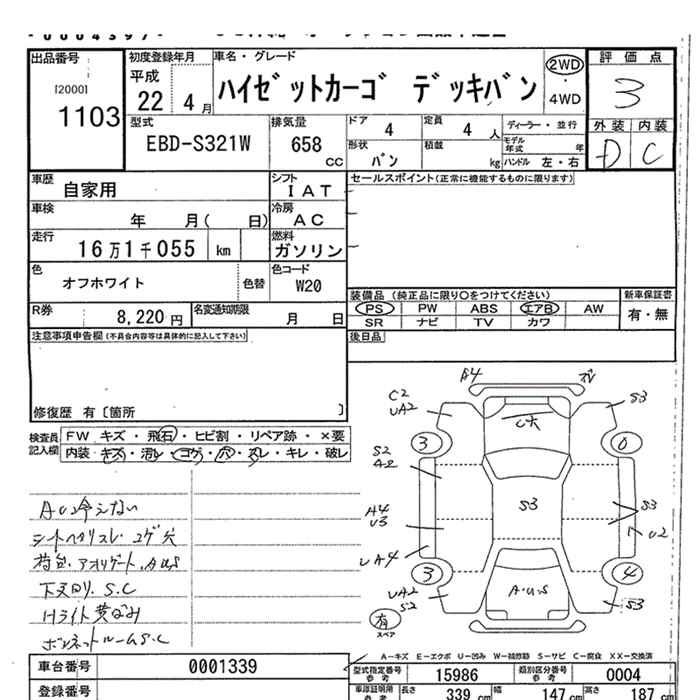 出品番号
[2000]
1103
初度登録年月
平成
22 4月
車名・グレード
ハイゼットカーゴ デッキバン
2WD
・
4WD
評価点
3
外装 内装
D C
型式
EBD-S321W
排気量
658
CC
ドア
4
定員
4 人
ディーラー・並行
モデル年式 年
形状
バン
積載
kg
ハンドル 左・右
車歴
自家用
シフト
IAT
セールスポイント(正常に機能するものに限ります)
車検
年 月( 日)
冷房
AC
走行
16万1千055 km
燃料
ガソリン
色
オフホワイト
色替
色コード
W20
装備品 (純正品に限り○をつけてください)
新車保証書
PS PW ABS エアB AW
SR ナビ TV カワ
有・無
R券
8,220 円
名変通知期限
月 日
後日品
注意事項申告欄(不具合内容等は具体的に記入して下さい)
修復歴 有〔箇所 〕
検査員
記入欄
FW キズ・飛石・ヒビ割・リペア跡・×要
内装・キズ・汚レ・コゲ・穴・スレ・キレ・破レ
A4
C2
UA2
S3
C大
3
0
S2
A2
S3
S3
A4
U3
U2
UA4
3
4
UA2
S2
A・U・S
S3
有
スペア
シートヘタリスレ・コゲ穴
荷台、アオリゲート、AUS
下又サビ、S.C
Hライト黄ばみ
ボンネットルームS.C
A−キズ E−エクボ U−凹み W−補修跡 S−サビ C−腐食 XX−交換済
車台番号
0001339
型式指定番号
参考
15986
類別区分番号
参考
0004
登録番号
車庫証明用
参考
長さ
339 cm
幅
147 cm
高さ
187 cm